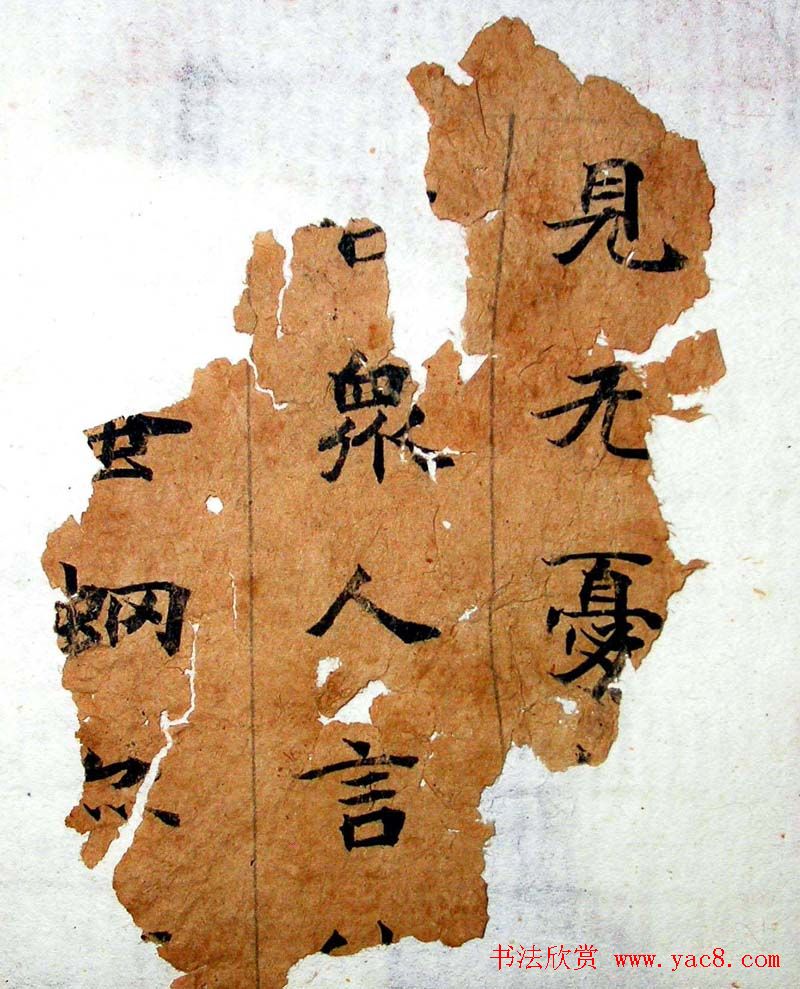 見无憂
衆人言
世蜩
书法欣赏 www.yac8.com